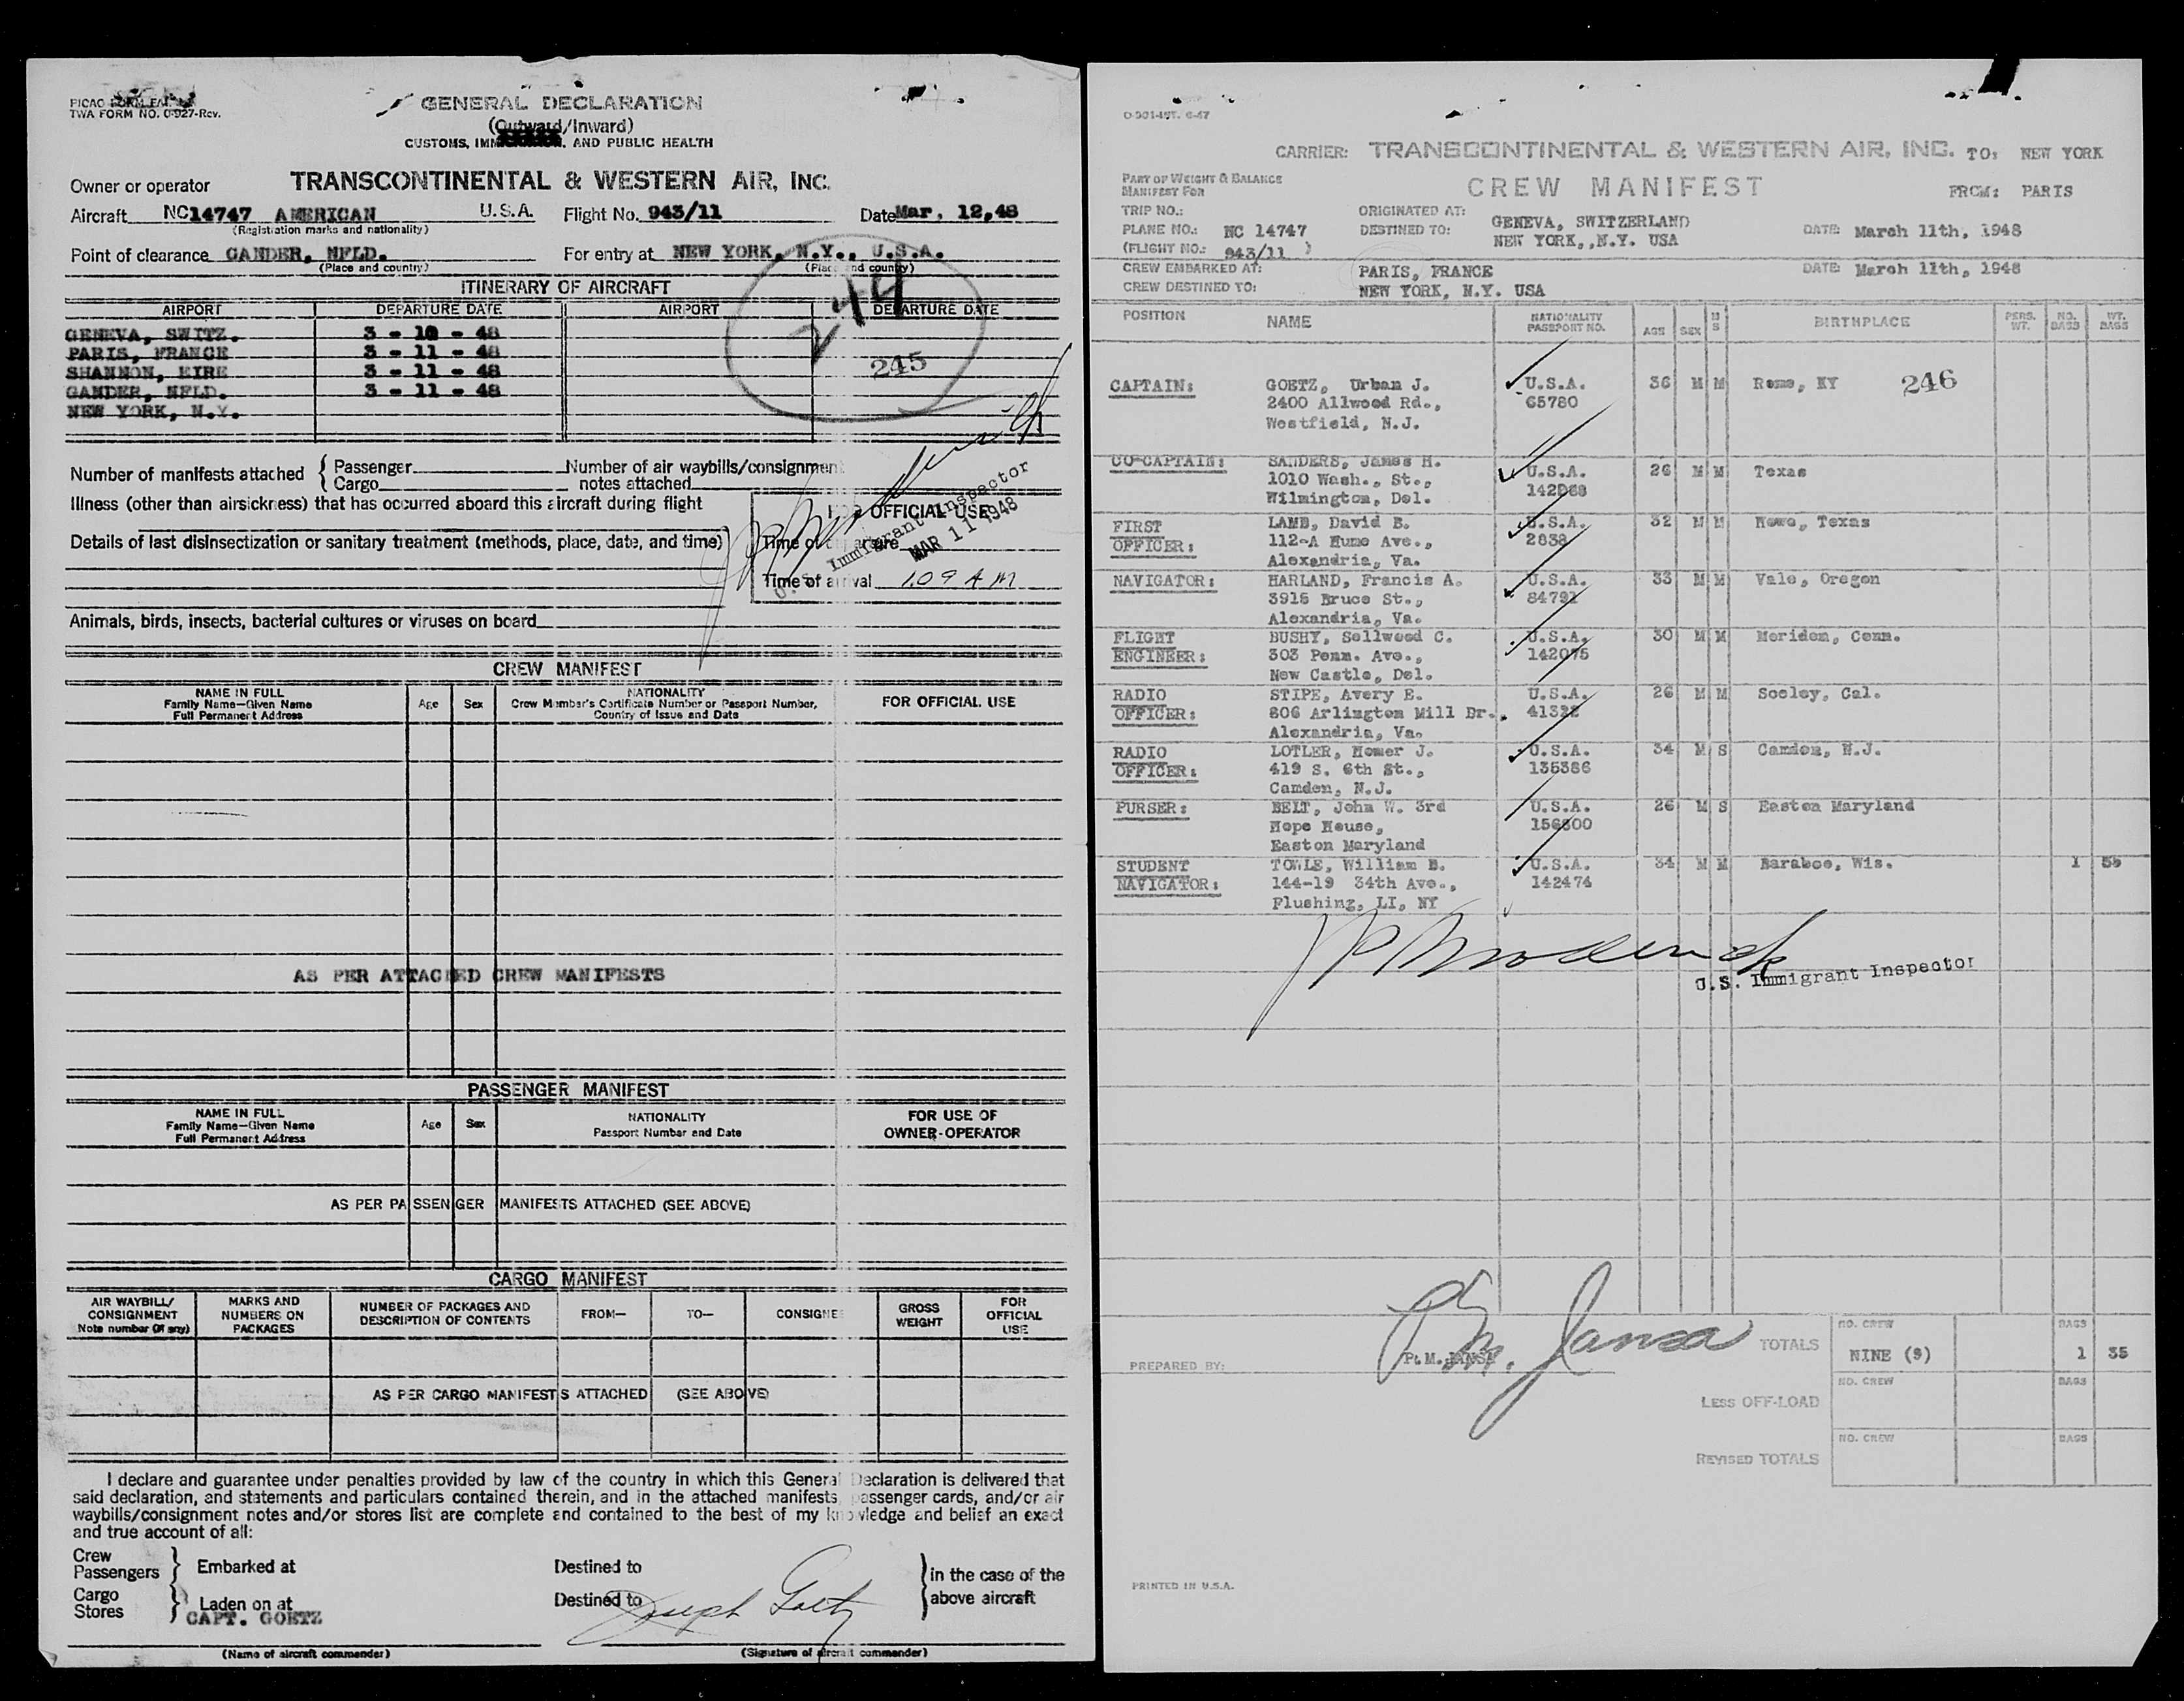 TWA FORM NO. 0-927-Rev.
GENERAL DECLARATION
(Outward/Inward)
CUSTOMS, AND PUBLIC HEALTH
Owner or operator TRANSCONTINENTAL & WESTERN AIR, INC.
Aircraft NC14747 AMERICAN U.S.A. Flight No. 943/11 Date Mar. 12,48
(Registration marks and nationality)
Point of clearance GANDER, NFLD. For entry at NEW YORK, N.Y., U.S.A.
(Place and country) (Place and country)
ITINERARY OF AIRCRAFT
AIRPORT DEPARTURE DATE AIRPORT DEPARTURE DATE
244
GENEVA, SWITZ. 3 - 10 - 48
PARIS, FRANCE 3 - 11 - 48
245
SHANNON, EIRE 3 - 11 - 48
GANDER, NFLD. 3 - 11 - 48
NEW YORK, N.Y.
Number of manifests attached { Passenger Number of air waybills/consignment
Cargo notes attached
Illness (other than airsickness) that has occurred aboard this aircraft during flight
FOR OFFICIAL USE
Details of last disinsectization or sanitary treatment (methods, place, date, and time)
Time of
U.S. Immigrant Inspector
MAR 11 1948
Time of arrival 1.09 AM
Animals, birds, insects, bacterial cultures or viruses on board
CREW MANIFEST
NAME IN FULL
Family Name—Given Name
Full Permanent Address
Age Sex
NATIONALITY
Crew Member's Certificate Number or Passport Number,
Country of Issue and Date
FOR OFFICIAL USE
AS PER ATTACHED CREW MANIFESTS
PASSENGER MANIFEST
NAME IN FULL
Family Name—Given Name
Full Permanent Address
Age Sex
NATIONALITY
Passport Number and Date
FOR USE OF
OWNER-OPERATOR
AS PER PASSENGER MANIFESTS ATTACHED (SEE ABOVE)
CARGO MANIFEST
AIR WAYBILL/
CONSIGNMENT
Note number (if any)
MARKS AND
NUMBERS ON
PACKAGES
NUMBER OF PACKAGES AND
DESCRIPTION OF CONTENTS
FROM— TO— CONSIGNEE
GROSS
WEIGHT
FOR
OFFICIAL
USE
AS PER CARGO MANIFESTS ATTACHED (SEE ABOVE)
I declare and guarantee under penalties provided by law of the country in which this General Declaration is delivered that
said declaration, and statements and particulars contained therein, and in the attached manifests, passenger cards, and/or air
waybills/consignment notes and/or stores list are complete and contained to the best of my knowledge and belief an exact
and true account of all:
Crew
Passengers } Embarked at Destined to
Cargo
Stores } Laden on at Destined to
in the case of the
above aircraft
CAPT. GOETZ
Joseph Goetz
(Name of aircraft commander) (Signature of aircraft commander)
CARRIER: TRANSCONTINENTAL & WESTERN AIR, INC. TO: NEW YORK
PART OF WEIGHT & BALANCE
MANIFEST FOR
CREW MANIFEST FROM: PARIS
TRIP NO.: ORIGINATED AT: GENEVA, SWITZERLAND
PLANE NO.: NC 14747 DESTINED TO: NEW YORK,,N.Y. USA DATE: March 11th, 1948
(FLIGHT NO.: 943/11 )
CREW EMBARKED AT: PARIS, FRANCE DATE: March 11th, 1948
CREW DESTINED TO: NEW YORK, N.Y. USA
POSITION NAME NATIONALITY PASSPORT NO. AGE SEX M S BIRTHPLACE PERS. WT. NO. BAGS WT. BAGS
CAPTAIN: GOETZ, Urban J. U.S.A. 36 M M Rome, KY 246
2400 Allwood Rd., 65780
Westfield, N.J.
CO-CAPTAIN: SANDERS, James H. U.S.A. 26 M M Texas
1010 Wash., St.,
Wilmington, Del.
FIRST LAMB, David B. U.S.A. 32 M M Howe, Texas
OFFICER: 112-A Hume Ave., 2838
Alexandria, Va.
NAVIGATOR: HARLAND, Francis A. U.S.A. 33 M M Vale, Oregon
3915 Bruce St., 84791
Alexandria, Va.
FLIGHT BUSHY, Sellwood C. U.S.A. 30 M M Meriden, Conn.
ENGINEER: 303 Penn. Ave., 142075
New Castle, Del.
RADIO STIPE, Avery E. U.S.A. 26 M M Seeley, Cal.
OFFICER: 806 Arlington Mill Dr., 41322
Alexandria, Va.
RADIO LOTLER, Homer J. U.S.A. 34 M S Camden, N.J.
OFFICER: 419 S. 6th St., 135386
Camden, N.J.
PURSER: BELT, John W. 3rd U.S.A. 26 M S Easton Maryland
Hope House, 156800
Easton Maryland
STUDENT TOWLE, William B. U.S.A. 34 M M Baraboo, Wis. 1
NAVIGATOR: 144-19 34th Ave., 142474
Flushing, LI, NY
U.S. Immigrant Inspector
P.M. Jansa
PREPARED BY: P.M.JANSA
TOTALS NO. CREW NINE (9) BAGS 1 35
LESS OFF-LOAD NO. CREW BAGS
REVISED TOTALS NO. CREW BAGS
PRINTED IN U.S.A.